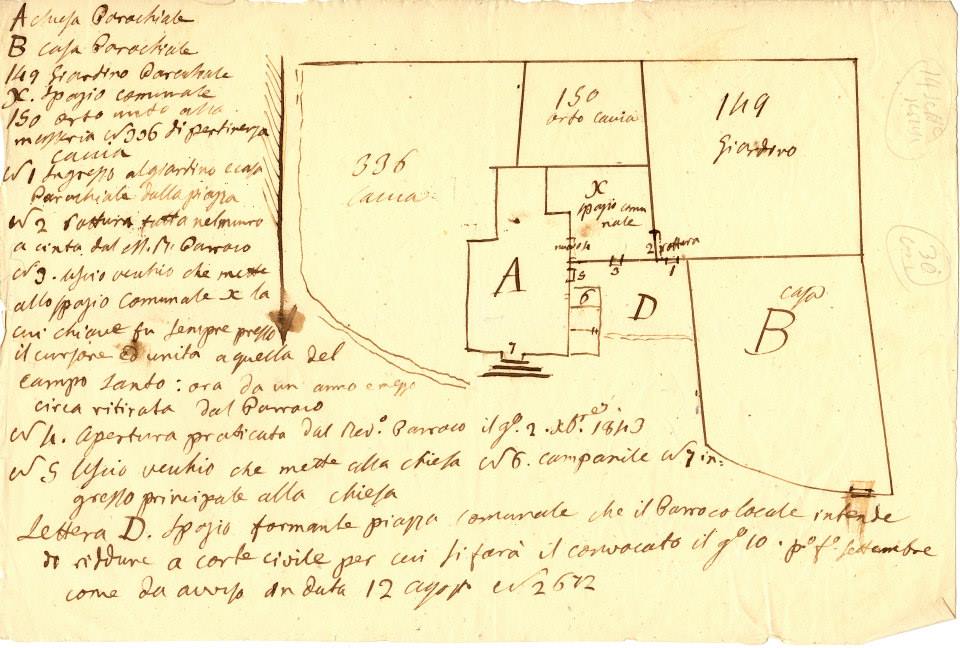 A chiesa Parochiale
B casa Parochiale
149 Giardino Parochiale
X. Spazio comunale
150 orto unito alla
masseria N 336 di pertinenza
Caccia
N 1 Ingresso al giardino e casa
Parochiale dalla piazza
N 2 Rottura fatta nel muro
a cinta dal M. R. Parroco
N 3. Uscio vecchio che mette
allo spazio Comunale X la
cui chiave fu sempre presso
il cursore ed unita a quella del
Campo Santo: ora da un anno e mezzo
circa ritirata dal Parroco
N 4. Apertura praticata dal Revdo. Parroco il go. 2. Xbre 1843
N 5 Uscio vecchio che mette alla chiesa N 6. campanile N 7 in:
gresso principale alla chiesa
Lettera D. Spazio formante piazza comunale che il Parroco locale intende
di ridurre a corte civile per cui si farà il convocato il go 10. settembre
come da avviso in data 12 agosto N 2672
336
150
orto
149
Giardino
X
spazio comu
nale
2 rottura
3
1
5
6
4
7
A
D
casa
B
30